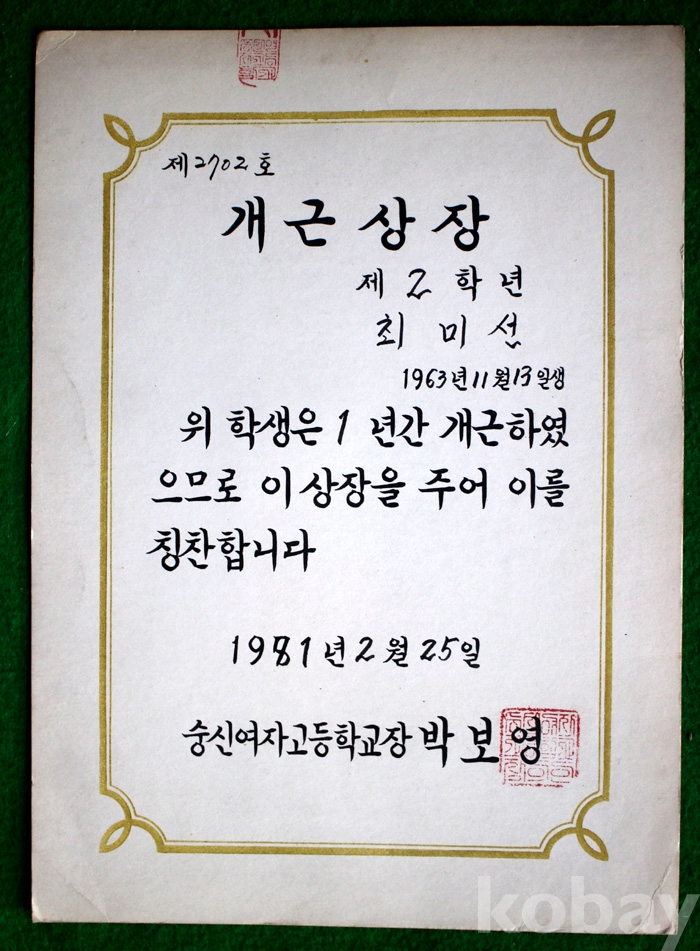 제2702호
개근상장
제 2 학년
최미선
1963년 11월 13일생
위 학생은 1 년간 개근하였
으므로 이 상장을 주어 이를
칭찬합니다
1981년 2월 25일
숭신여자고등학교장 박보영
kobay